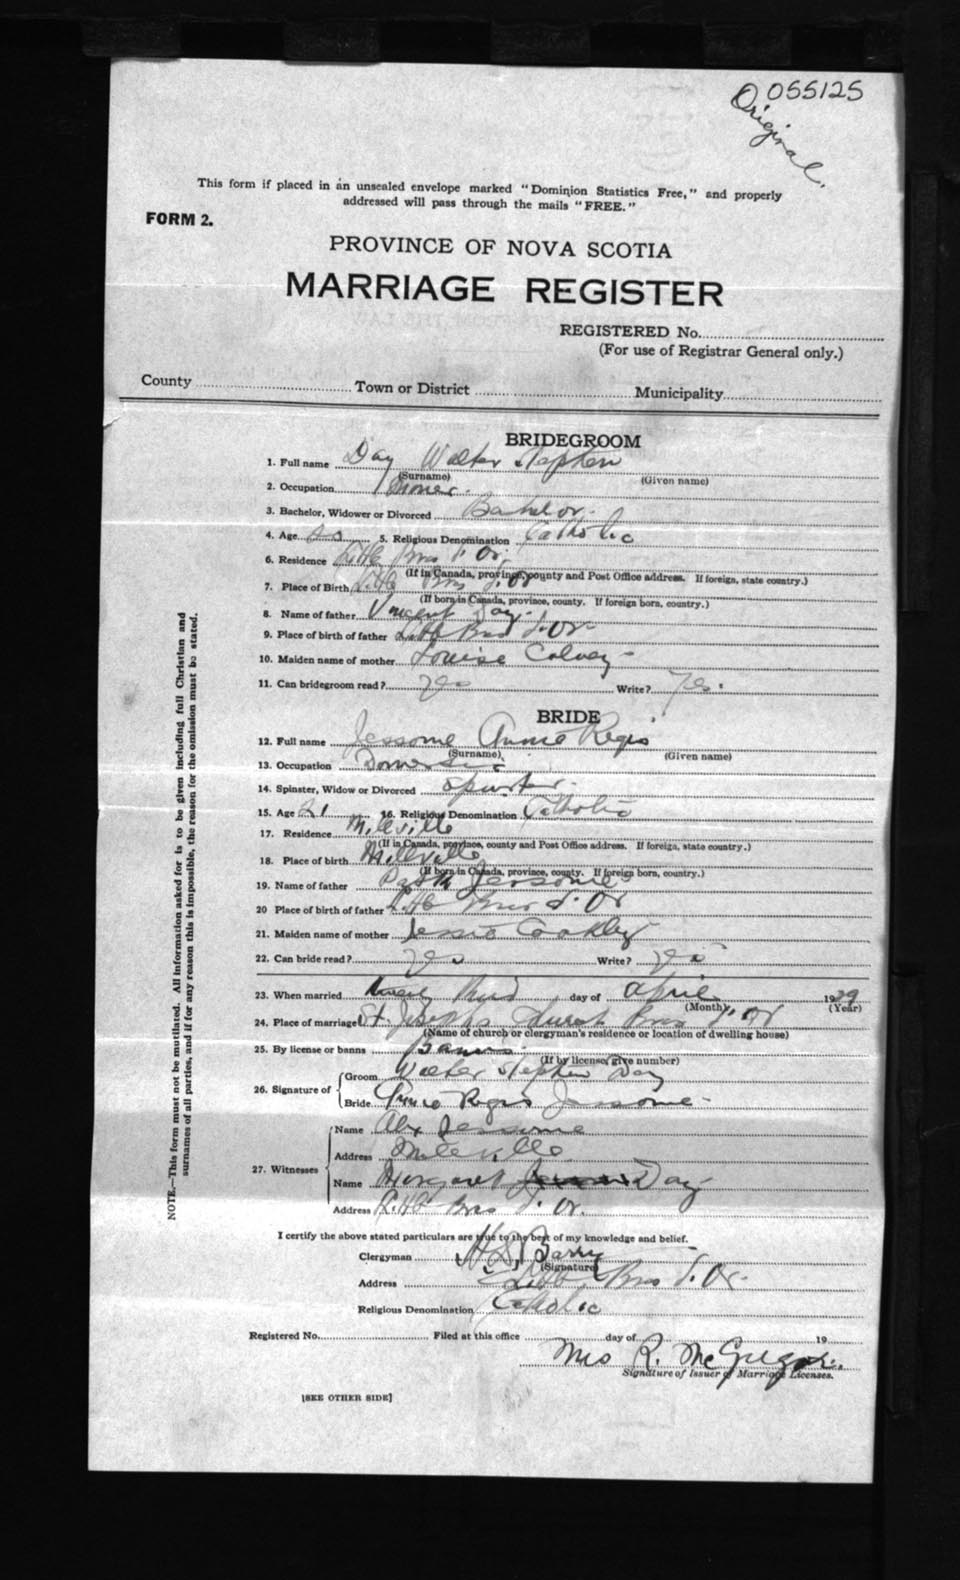 055125
Original.
This form if placed in an unsealed envelope marked "Dominion Statistics Free," and properly
addressed will pass through the mails "FREE."
FORM 2.
PROVINCE OF NOVA SCOTIA
MARRIAGE REGISTER
REGISTERED No.
(For use of Registrar General only.)
County Town or District Municipality
BRIDEGROOM
1. Full name Day Walter Stephen
(Surname) (Given name)
2. Occupation Miner.
3. Bachelor, Widower or Divorced Bachelor.
4. Age 5. Religious Denomination Catholic
6. Residence Little Bras d'Or.
(If in Canada, province, county and Post Office address. If foreign, state country.)
7. Place of Birth Little Bras d'Or
(If born in Canada, province, county. If foreign born, county.)
8. Name of father Vincent Day.
9. Place of birth of father Little Bras d'Or
10. Maiden name of mother Louise
11. Can bridegroom read? Yes Write? Yes.
BRIDE
12. Full name Jessome Annie Regis
(Surname) (Given name)
13. Occupation Domestic
14. Spinster, Widow or Divorced Spinster.
15. Age 21 16. Religious Denomination Catholic
17. Residence Millville
(If in Canada, province, county and Post Office address. If foreign, state country.)
18. Place of birth Millville
(If born in Canada, province, county. If foreign born, country.)
19. Name of father Jessome
20 Place of birth of father Little Bras d'Or
21. Maiden name of mother Jessie Coakley
22. Can bride read? Yes Write? Yes
23. When married day of April 1929
(Month) (Year)
24. Place of marriage St. Joseph's Church Bras d'Or
(Name of church or clergyman's residence or location of dwelling house)
25. By license or banns Banns.
(If by license, give number)
26. Signature of
Groom Walter Stephen Day
Bride Annie Regis Jessome
27. Witnesses
Name Alex Jessome
Address Millville
Name Margaret Day
Address Little Bras d'Or.
I certify the above stated particulars are true to the best of my knowledge and belief.
Clergyman Barry
(Signature)
Address Little Bras d'Or.
Religious Denomination Catholic
Registered No. Filed at this office day of 19
Mrs R. McGregor.
Signature of Issuer of Marriage Licenses.
[SEE OTHER SIDE]
NOTE.—This form must not be mutilated. All information asked for is to be given including full Christian and
surnames of all parties, and if for any reason this is impossible, the reason for the omission must be stated.